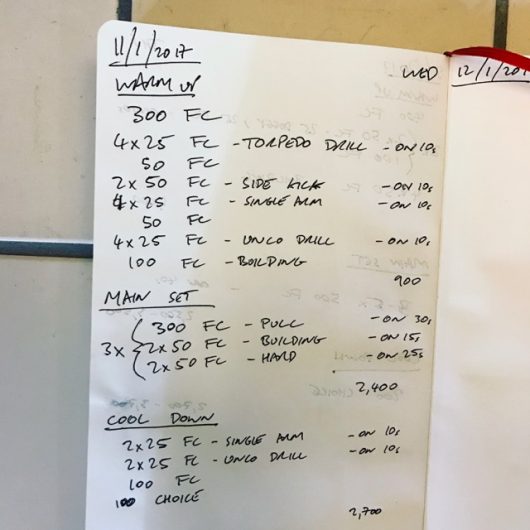 11/1/2017 WED
WARM UP
300 FC
4x25 FC - TORPEDO DRILL - ON 10s
50 FC
2x50 FC - SIDE KICK - ON 10s
4x25 FC - SINGLE ARM - ON 10s
50 FC
4x25 FC - UNCO DRILL - ON 10s
100 FC - BUILDING
900
MAIN SET
3x { 300 FC - PULL - ON 30s
2x50 FC - BUILDING - ON 15s
2x50 FC - HARD - ON 25s
2,400
COOL DOWN
2x25 FC - SINGLE ARM - ON 10s
2x25 FC - UNCO DRILL - ON 10s
100 FC
100 CHOICE
2,700
12/1/201